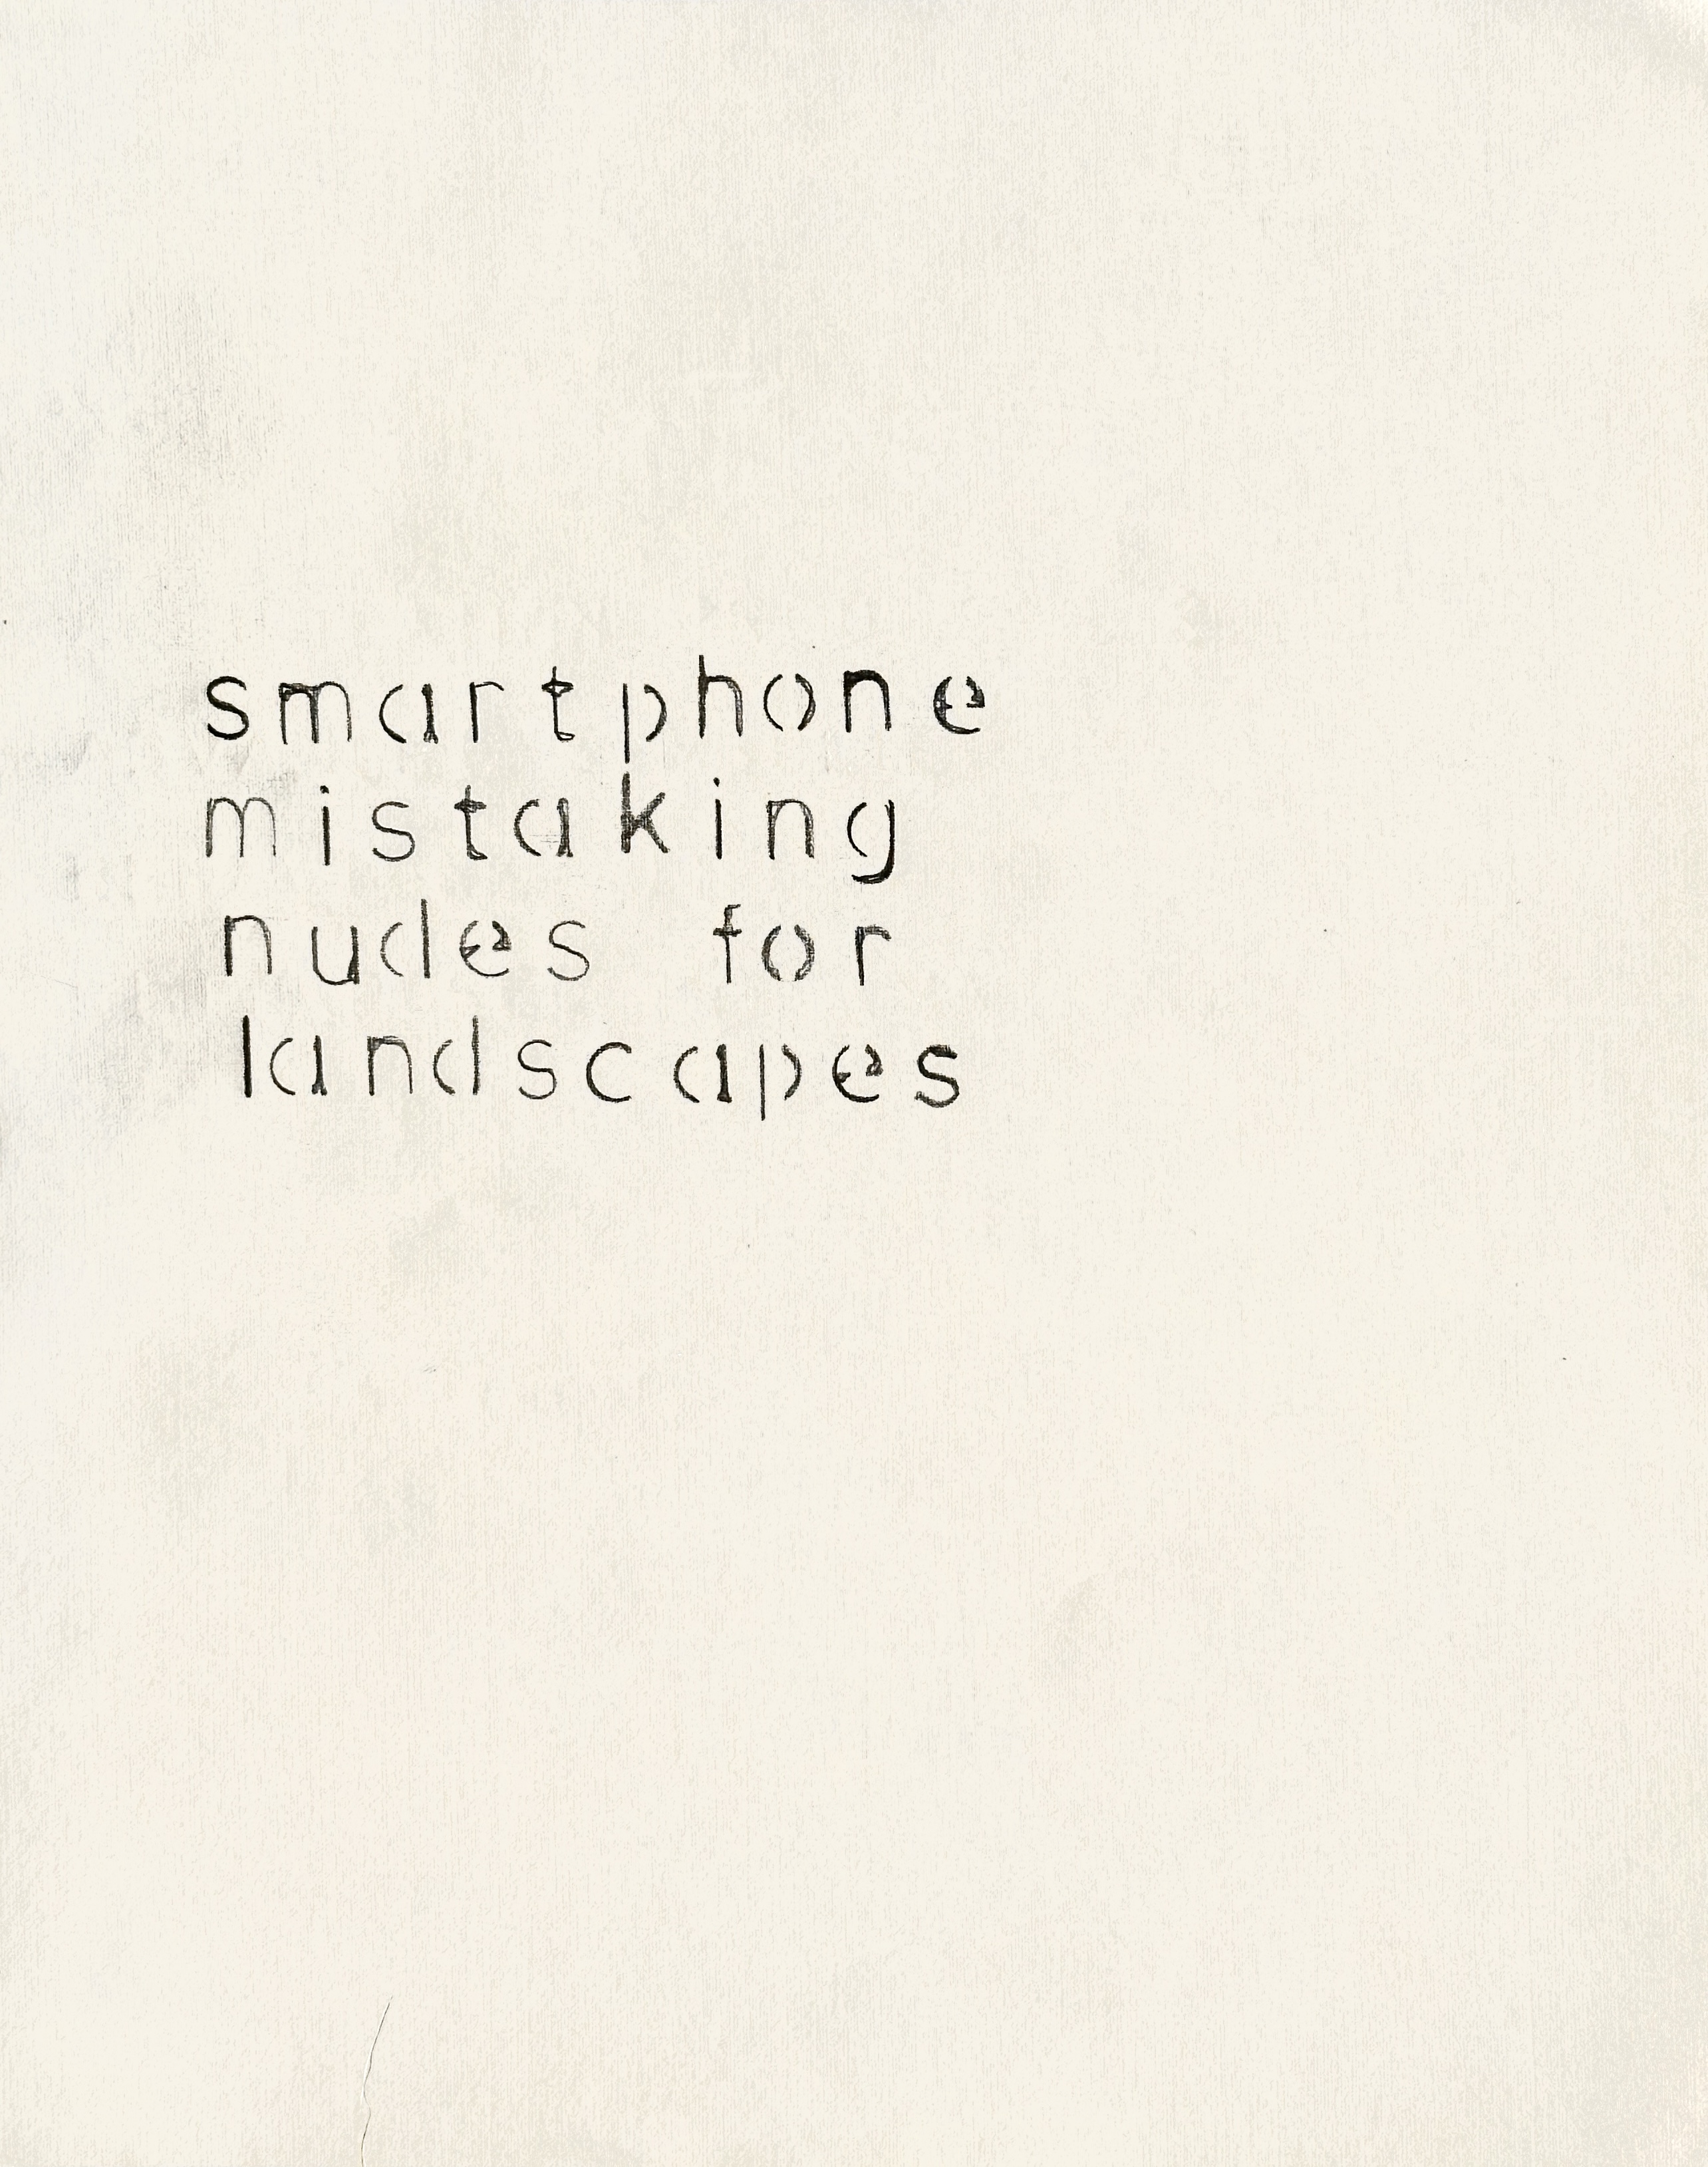 smartphone
mistaking
nudes for
landscapes